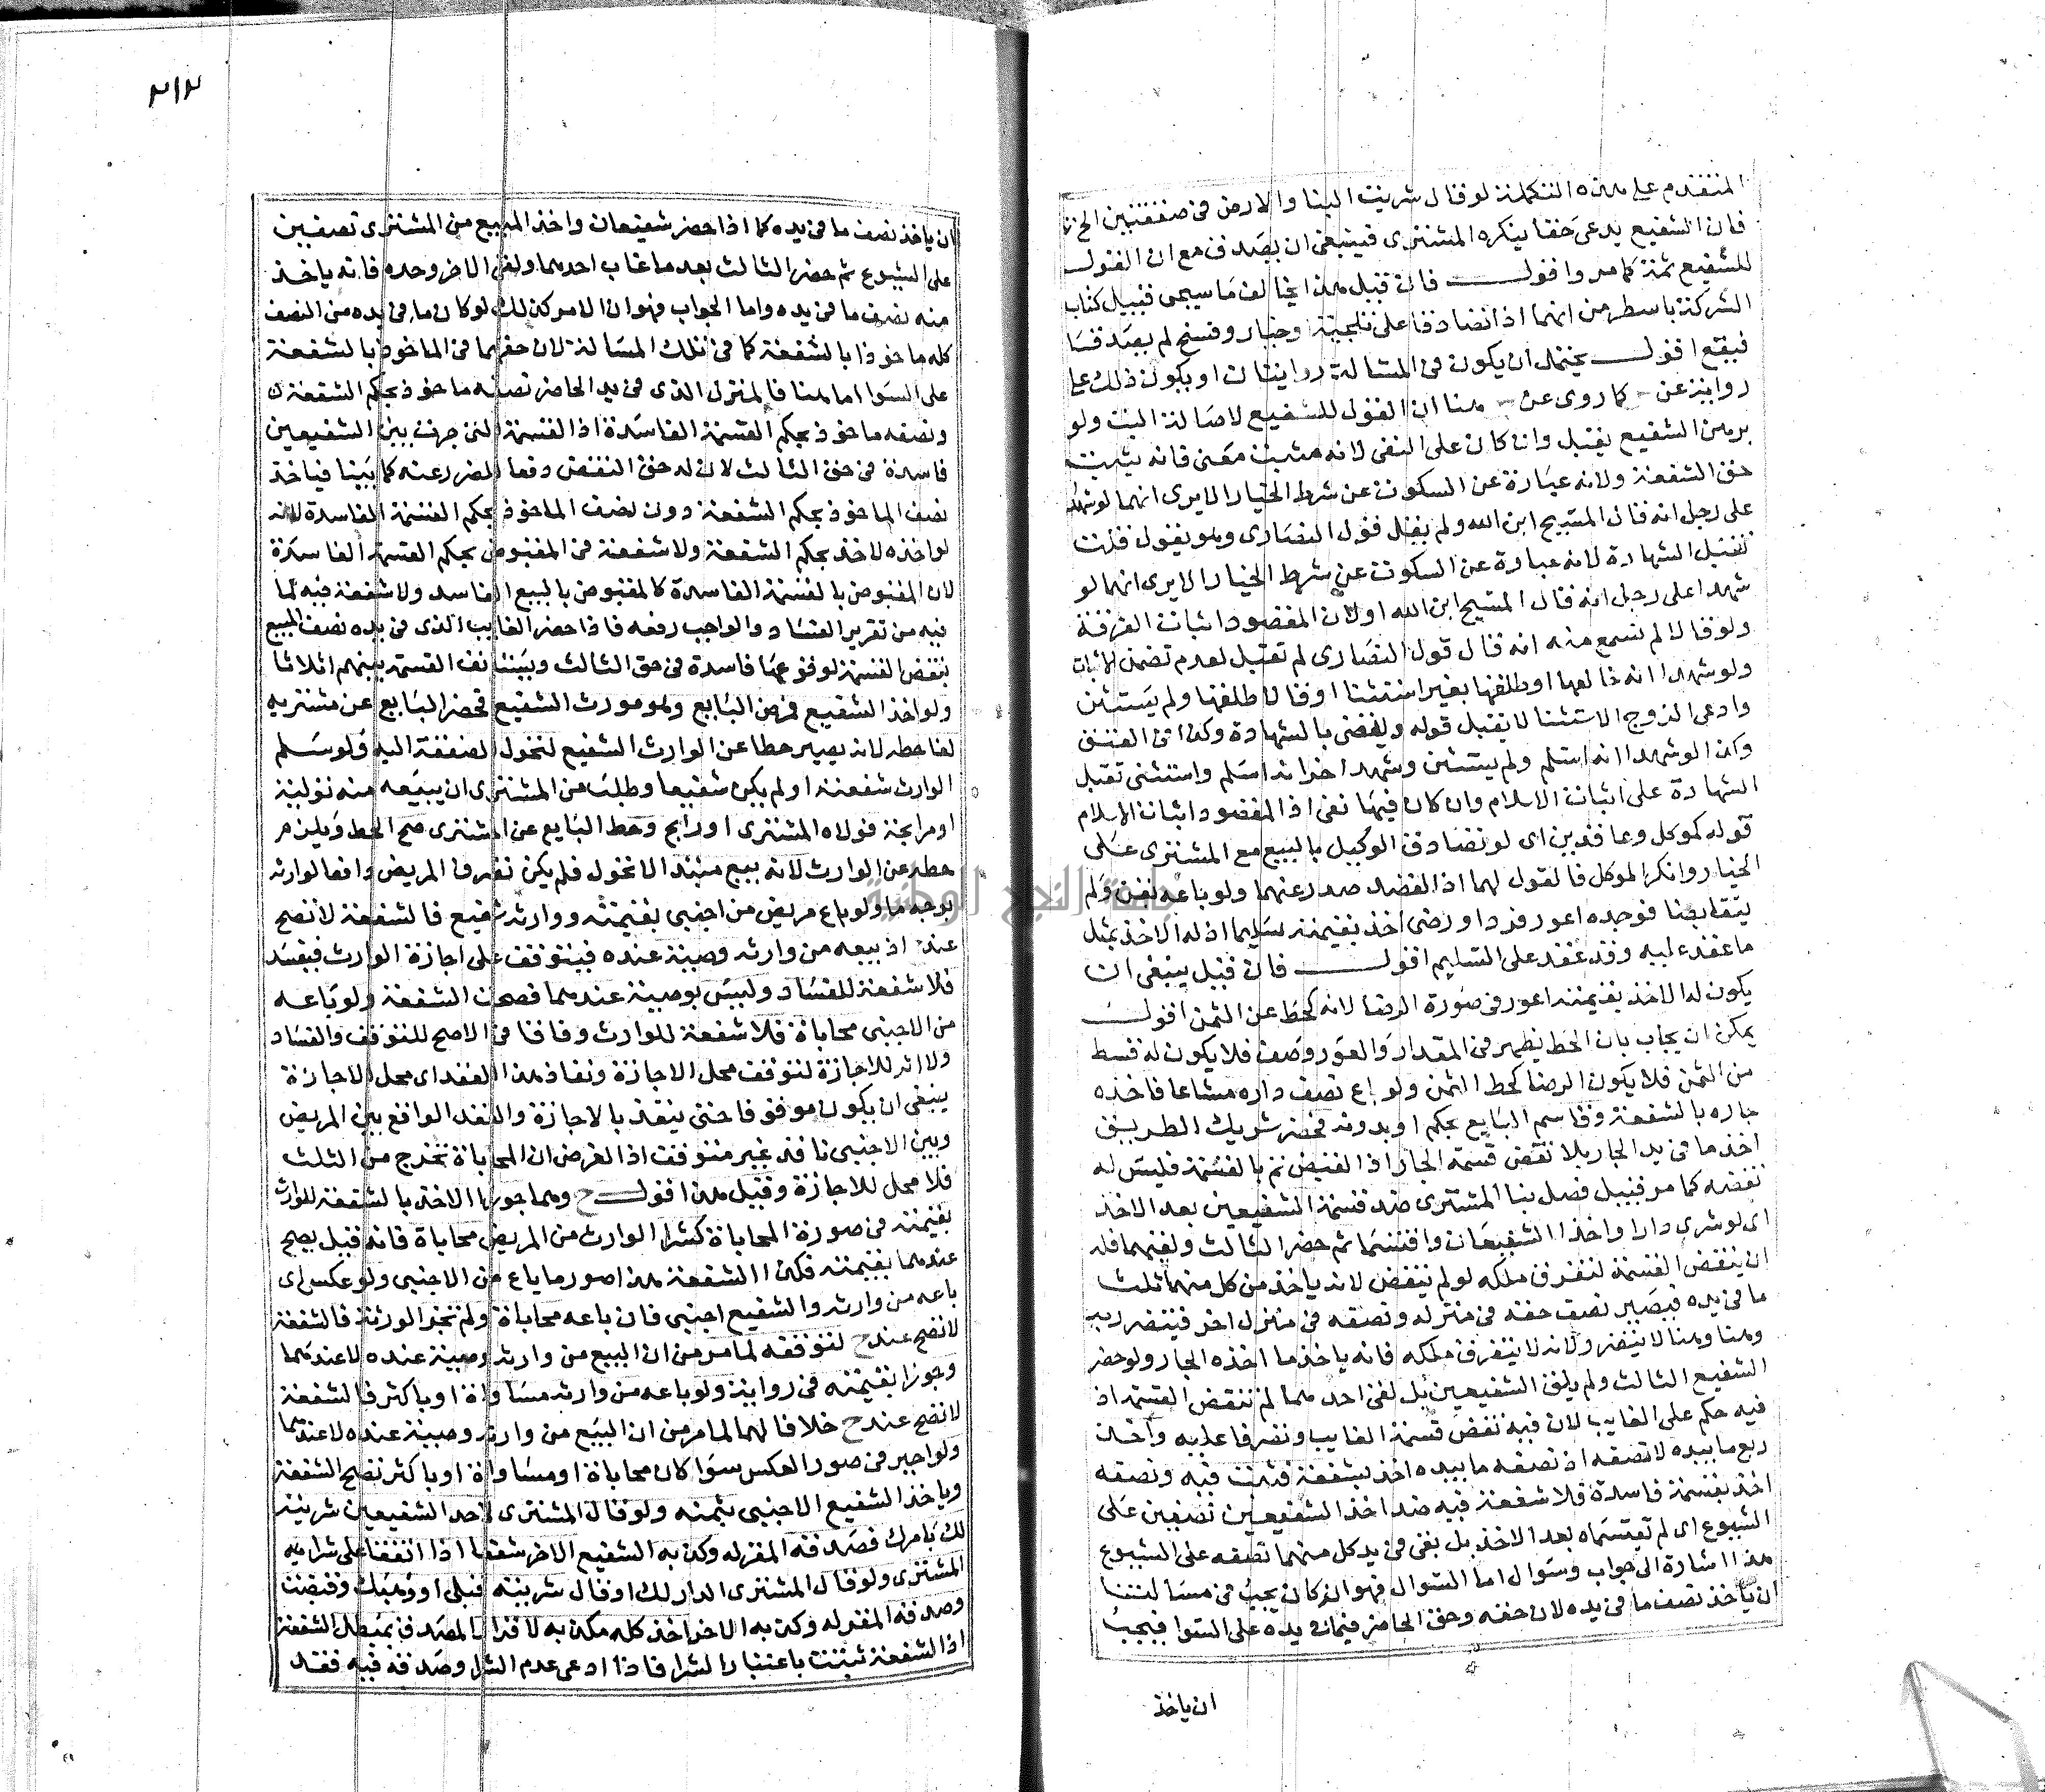 المتقدم على هذه التكملة لو قال شريت البنا والارض في صفقتين الخ
فان الشفيع يدعى حقا ينكره المشترى فينبغى ان يصدق مع ان القول
للشفيع ثمة كما مر واقول فان قيل هذا يخالف ما سيجى قبيل كتاب
الشركة باسطر من انهما اذا تصادقا على تلجية وخيار وفسخ لم يصدقا
فيقع اقول يحتمل ان يكون في المسالة روايتان او يكون ذلك على
رواية عن كما روى عن هنا ان القول للشفيع لاصالة البت ولو
برهن الشفيع يقبل وان كان على النفى لانه مثبت معنى فانه يثبت
حق الشفعة ولانه عبارة عن السكوت عن شرط الخيار الا يرى انهما لو شهدا
على رجل انه قال المسيح ابن الله ولم يقل قول النصارى وهو يقول قلت
تقبل الشهادة لانه عبارة عن السكوت عن شرط الخيار الا يرى انهما لو
شهدا على رجل انه قال المسيح ابن الله او لان المقصود اثبات الفرقة
ولو قالا لم نسمع منه انه قال قول النصارى لم تقبل لعدم تضمن الاثبات
ولو شهدا انه خالعها او طلقها بغير استثنا او قالا طلقها ولم يستثن
وادعى الزوج الاستثنا لا يقبل قوله ويقضى بالشهادة وكذا في العتق
وكذا لو شهدا انه اسلم ولم يستثن وشهد اخر انه اسلم واستثنى تقبل
الشهادة على اثبات الاسلام وان كان فيها نفى اذ المقصود اثبات الاسلام
قوله كموكل وعاقدين اى لو تصادق الوكيل بالبيع مع المشترى على
الخيار وانكر الموكل فالقول لهما اذ القصد صدر عنهما ولو باعه بقن ولم
يتقابضا فوجده اعور فرد او رضى اخذ بقيمته سليما اذ له الاخذ بمثل
ما عقد عليه وقد عقد على السليم اقول فان قيل ينبغى ان
يكون له الاخذ بقيمته اعور في صورة الرضا لانه كحط عن الثمن اقول
يمكن ان يجاب بان الحط يظهر في المقدار والعور وصف فلا يكون له قسط
من الثمن فلا يكون الرضا كحط الثمن ولو باع نصف داره مشاعا فاخذه
جاره بالشفعة وقاسم البايع بحكم او بدونه فحضر شريك الطريق
اخذ ما في يد الجار بلا نقض قسمة الجار اذ القبض تم بالقسمة فليس له
نقضه كما مر قبيل فصل بنا المشترى ضد قسمة الشفيعين بعد الاخذ
اى لو شرى دارا واخذا الشفيعان واقتسما ثم حضر الثالث ولقيهما فله
ان ينقض القسمة لتفرق ملكه لو لم ينقض لانه ياخذ من كل منهما ثلث
ما في يده فيصير نصف حقه في منزله ونصفه في منزل اخر فيتضرر به
وهنا وهنا لا يتضرر لانه لا يتفرق ملكه فانه ياخذ ما اخذه الجار ولو حضر
الشفيع الثالث ولم يلق الشفيعين بل لقى احدهما لم تنقض القسمة اذ
فيه حكم على الغايب لان فيه نقض قسمة الغايب وتصرفا عليه واخذ
ربع ما بيده لا نصفه اذ نصفه ما بيده اخذ بشفعة فثبت فيه ونصفه
اخذ بقسمة فاسدة فلا شفعة فيه ضد اخذ الشفيعين نصفين على
الشيوع اى لم يقتسماه بعد الاخذ بل بقى في يد كل منهما نصفه على الشيوع
هذا اشارة الى جواب وسوال اما السوال فهو انه كان يجب في مسالتنا
ان ياخذ نصف ما في يده لان حقه وحق الحاضر فيما في يده على السوا فيجب
ان ياخذ
٣١٣
ان ياخذ نصف ما في يده كما اذا حضر شفيعان واخذ المبيع من المشترى نصفين
على الشيوع ثم حضر الثالث بعد ما غاب احدهما ولقى الاخر وحده فانه ياخذ
منه نصف ما في يده واما الجواب فهو ان الامر كذلك لو كان ما في يده من النصف
كله ماخوذا بالشفعة كما في تلك المسالة لان حقهما في الماخوذ بالشفعة
على السوا اما هنا فالمنزل الذى في يد الحاضر نصفه ماخوذ بحكم الشفعة
ونصفه ماخوذ بحكم القسمة الفاسدة اذ القسمة التى جرت بين الشفيعين
فاسدة في حق الثالث لان له حق النقض دفعا للضرر عنه كما بينا فياخذ
نصف الماخوذ بحكم الشفعة دون نصف الماخوذ بحكم القسمة الفاسدة لانه
لو اخذه لاخذ بحكم الشفعة ولا شفعة في المقبوض بحكم القسمة الفاسدة
لان المقبوض بالقسمة الفاسدة كالمقبوض بالبيع الفاسد ولا شفعة فيه لما
فيه من تقرير الفساد والواجب رفعه فاذا حضر الغايب الذى في يده نصف المبيع
تنقض القسمة لوقوعها فاسدة في حق الثالث ويستانف القسمة بينهم اثلاثا
ولو اخذ الشفيع فمرض البايع وهو مورث الشفيع فحضر البايع عن مشتريه
لغا حطه لانه يصير حطا عن الوارث الشفيع لتحول الصفقة اليه ولو سلم
الوارث شفعته او لم يكن شفيعا وطلب من المشترى ان يبيعه منه تولية
او مرابحة فولاه المشترى او رابح وحط البايع عن المشترى صح الحط ويلزم
حطه عن الوارث لانه بيع مبتدا لا تحول فلم يكن تصرف المريض واقعا لوارثه
بوجه ما ولو باع مريض من اجنبى بقيمته ووارثه شفيع فالشفعة لا تصح
عند ح اذ بيعه من وارثه وصية عنده فيتوقف على اجازة الوارث فيفسد
فلا شفعة للفساد وليس بوصية عندهما فصحت الشفعة ولو باعه
من الاجنبى محاباة فلا شفعة للوارث وفاقا في الاصح للتوقف والفساد
ولا اثر للاجازة لتوقف محل الاجازة ونفاذ هذا العقد اى محل الاجازة
ينبغى ان يكون موقوفا حتى ينفذ بالاجازة والعقد الواقع بين المريض
وبين الاجنبى نافذ غير متوقف اذ الفرض ان المحاباة تخرج من الثلث
فلا محل للاجازة وقيل هذا قول ح وهما جوزا الاخذ بالشفعة للوارث
بقيمته في صورة المحاباة كشرا الوارث من المريض محاباة فانه قيل يصح
عندهما بقيمته فكذا الشفعة هذا صور ما باع من الاجنبى ولو عكس اى
باعه من وارثه والشفيع اجنبى فان باعه محاباة ولم تجز الورثة فالشفعة
لا تصح عند ح لتوقفه لما مر من ان البيع من وارثه وصية عنده لا عندهما
وجوزا بقيمته في رواية ولو باعه من وارثه مساواة او باكثر فالشفعة
لا تصح عند ح خلافا لهما لما مر من ان البيع من وارثه وصية عنده لا عندهما
ولو اجيز في صور العكس سوا كان محاباة او مساواة او باكثر تصح الشفعة
وياخذ الشفيع الاجنبى بثمنه ولو قال المشترى لاحد الشفيعين شريته
لك بامرك فصدقه المقر له وكذبه الشفيع الاخر شفعا اذا اتفقا على شرايه
المشترى ولو قال المشترى الدار لك او قال شريته قبلى او وهبك وقبضت
وصدقه المقر له وكذبه الاخر اخذ كله مكذبه لاقرار المصدق بمبطل الشفعة
اذ الشفعة تثبت باعتبار الشرا فاذا ادعى عدم الشرا وصدقه فيه فقد
جامعة النجاح الوطنية